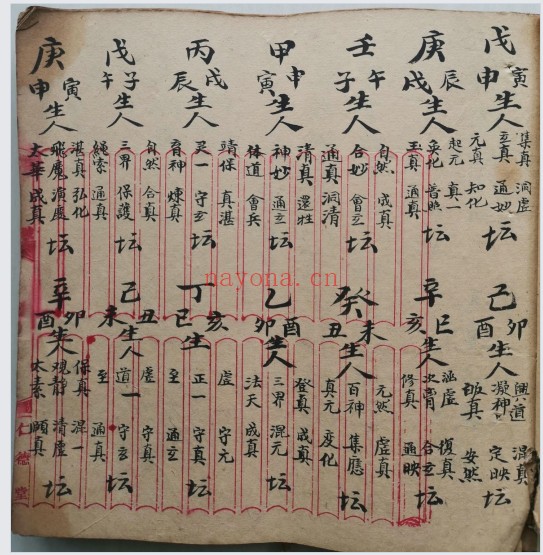 戊寅申生人
集真 洞虛
立真 通妙 坛
元真 知化
起元 真一
庚辰戌生人
采化 普照 坛
玉真 通真
壬午子生人
自然 成真
合妙 會玄 坛
通真 洞清
甲申寅生人
清真 還
神妙 通玄 坛
体道 會兵
丙戌辰生人
靖保 真湛
灵一 守玄 坛
育神 煉真
戊子午生人
自然 合真
三界 保護 坛
绳索 通真
庚寅申生人
湛真 弘化
飛魔 演慶 坛
太華 成真
己卯酉生人
興道 混真
凝神 定映 坛
真 安然
辛巳亥生人
涵虛 復真
次 合玄 坛
修真 通映
癸未丑生人
元然 虛真
百神 集應 坛
真元 度化
乙酉卯生人
登真 成真
三界 混元 坛
法天 成真
丁亥巳生
虛 守元
正一 守真 坛
至 通玄
己丑未生人
虛 守真
道一 守玄 坛
至 通真
辛卯酉生人
保真 混一
觀静 清虛 坛
太素 願真
仁德堂
nayona.cn